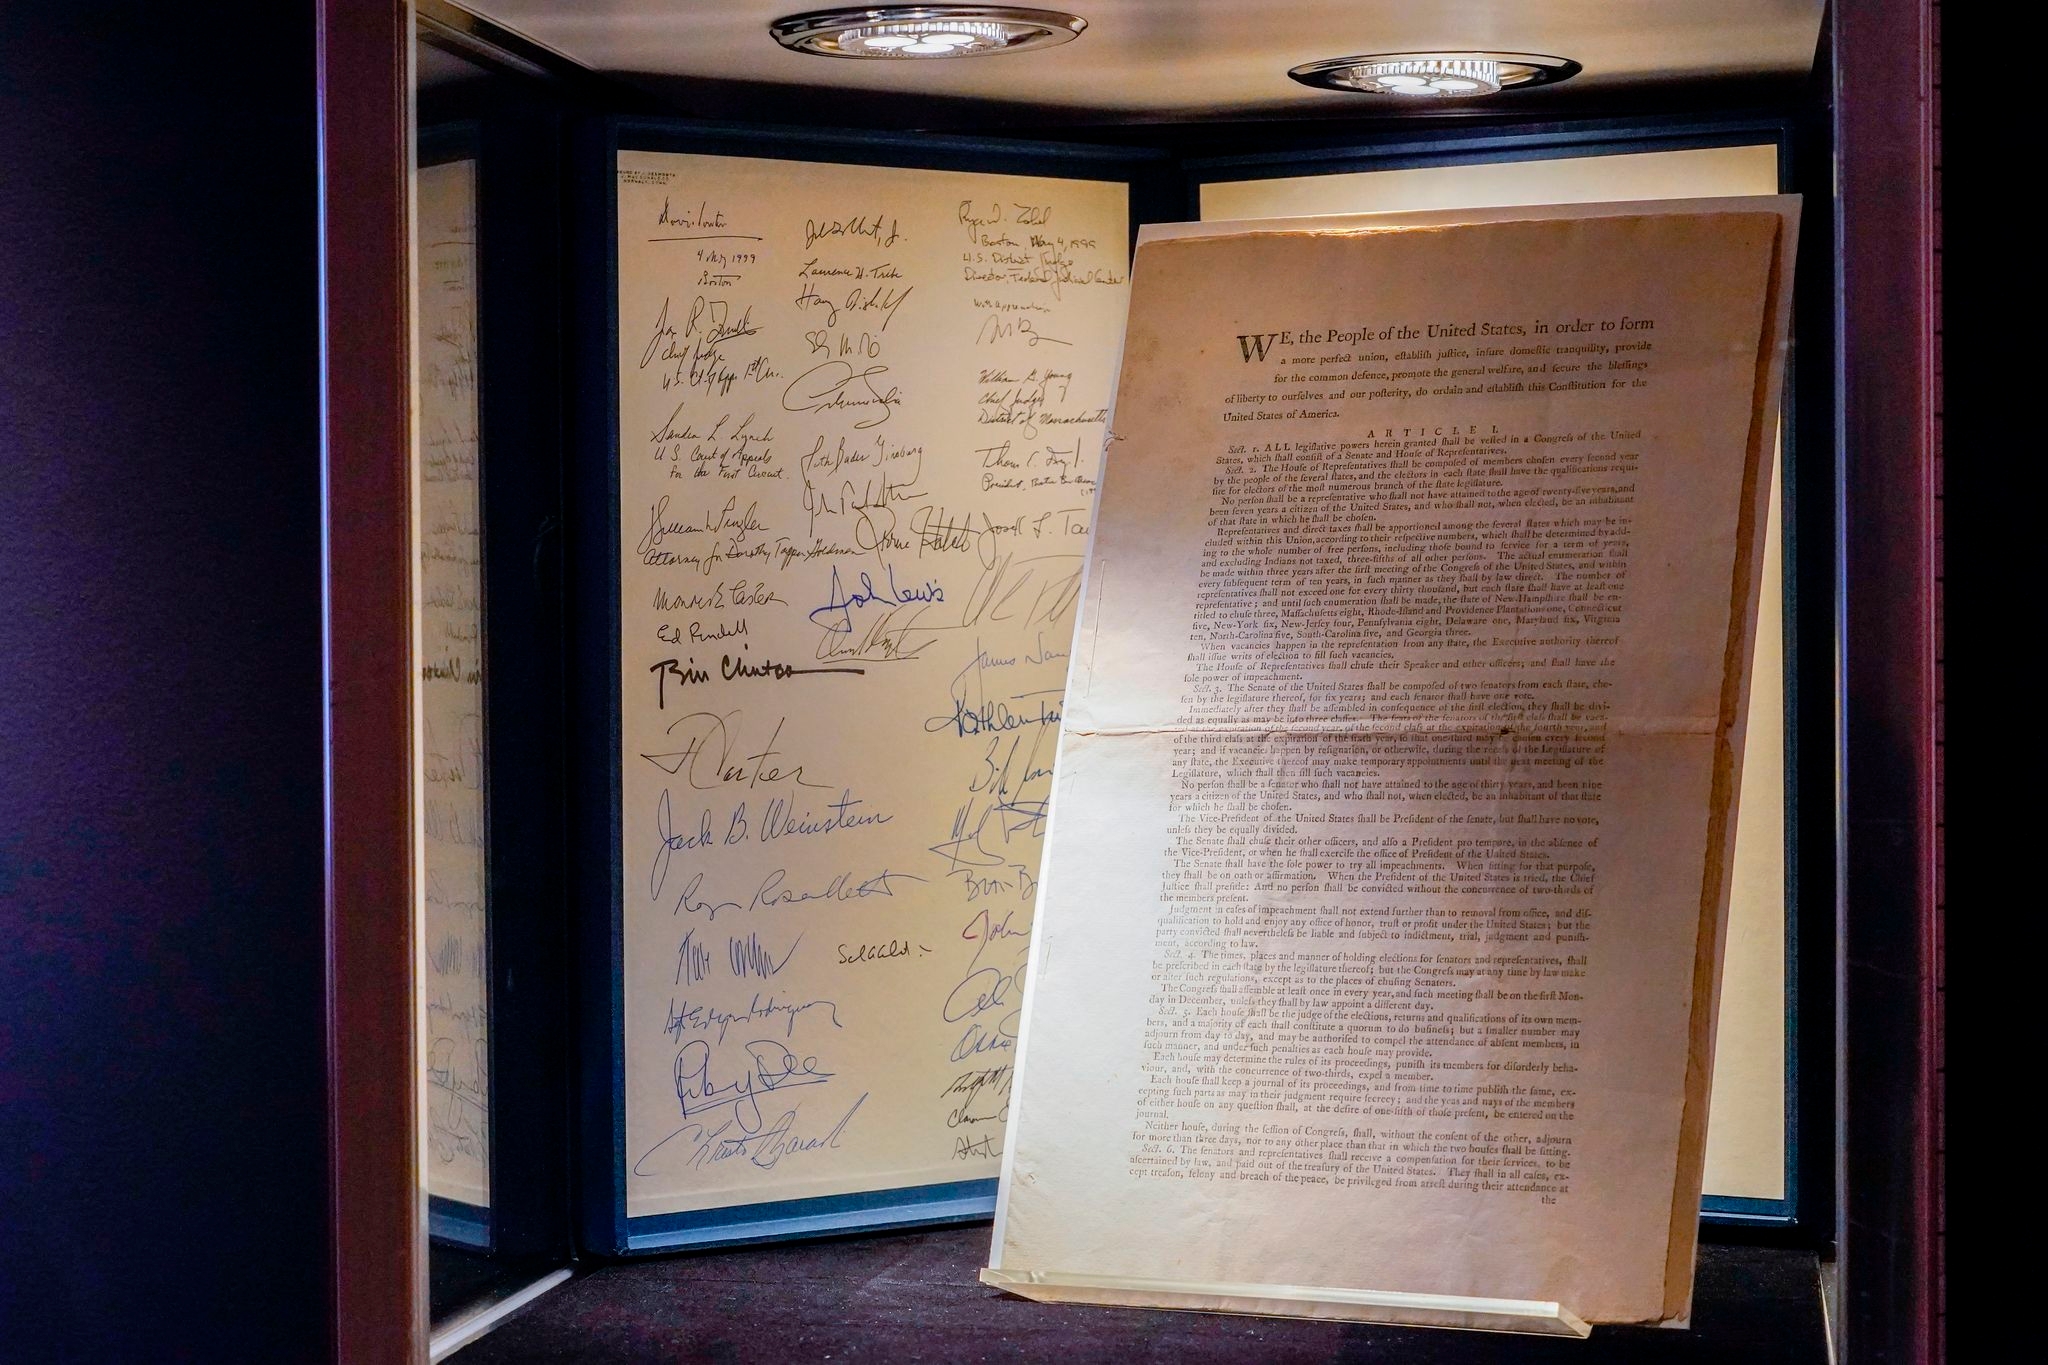 4 May 1999
Boston
Chief Judge
Sandra L. Lynch
U.S. Court of Appeals
for the First Circuit.
Attorney for Dorothy Tapper Goldman
Ed Rendell
Bill Clinton
J Carter
Jack B. Weinstein
Laurence H. Tribe
Ruth Bader Ginsburg
John Lewis
Boston, May 4, 1999
U.S. District Judge
Director, Federal Judicial Center
with appreciation
William G. Young
Chief Judge
District of Massachusetts
WE, the People of the United States, in order to form
a more perfect union, establish justice, insure domestic tranquility, provide
for the common defence, promote the general welfare, and secure the blessings
of liberty to ourselves and our posterity, do ordain and establish this Constitution for the
United States of America.
ARTICLE I.
Sect. 1. ALL legislative powers herein granted shall be vested in a Congress of the United
States, which shall consist of a Senate and House of Representatives.
Sect. 2. The House of Representatives shall be composed of members chosen every second year
by the people of the several states, and the electors in each state shall have the qualifications requi-
site for electors of the most numerous branch of the state legislature.
No person shall be a representative who shall not have attained to the age of twenty-five years, and
been seven years a citizen of the United States, and who shall not, when elected, be an inhabitant
of that state in which he shall be chosen.
Representatives and direct taxes shall be apportioned among the several states which may be in-
cluded within this Union, according to their respective numbers, which shall be determined by add-
ing to the whole number of free persons, including those bound to service for a term of years,
and excluding Indians not taxed, three-fifths of all other persons. The actual enumeration shall
be made within three years after the first meeting of the Congress of the United States, and within
every subsequent term of ten years, in such manner as they shall by law direct. The number of
representatives shall not exceed one for every thirty thousand, but each state shall have at least one
representative; and until such enumeration shall be made, the state of New-Hampshire shall be en-
titled to chuse three, Massachusetts eight, Rhode-Island and Providence Plantations one, Connecticut
five, New-York six, New-Jersey four, Pennsylvania eight, Delaware one, Maryland six, Virginia
ten, North-Carolina five, South-Carolina five, and Georgia three.
When vacancies happen in the representation from any state, the Executive authority thereof
shall issue writs of election to fill such vacancies.
The House of Representatives shall chuse their Speaker and other officers; and shall have the
sole power of impeachment.
Sect. 3. The Senate of the United States shall be composed of two senators from each state, cho-
sen by the legislature thereof, for six years; and each senator shall have one vote.
Immediately after they shall be assembled in consequence of the first election, they shall be divi-
ded as equally as may be into three classes. The seats of the senators of the first class shall be vaca-
ted at the expiration of the second year, of the second class at the expiration of the fourth year, and
of the third class at the expiration of the sixth year, so that one-third may be chosen every second
year; and if vacancies happen by resignation, or otherwise, during the recess of the Legislature of
any state, the Executive thereof may make temporary appointments until the next meeting of the
Legislature, which shall then fill such vacancies.
No person shall be a senator who shall not have attained to the age of thirty years, and been nine
years a citizen of the United States, and who shall not, when elected, be an inhabitant of that state
for which he shall be chosen.
The Vice-President of the United States shall be President of the senate, but shall have no vote,
unless they be equally divided.
The Senate shall chuse their other officers, and also a President pro tempore, in the absence of
the Vice-President, or when he shall exercise the office of President of the United States.
The Senate shall have the sole power to try all impeachments. When sitting for that purpose,
they shall be on oath or affirmation. When the President of the United States is tried, the Chief
Justice shall preside: And no person shall be convicted without the concurrence of two-thirds of
the members present.
Judgment in cases of impeachment shall not extend further than to removal from office, and dis-
qualification to hold and enjoy any office of honor, trust or profit under the United States; but the
party convicted shall nevertheless be liable and subject to indictment, trial, judgment and punish-
ment, according to law.
Sect. 4. The times, places and manner of holding elections for senators and representatives, shall
be prescribed in each state by the legislature thereof; but the Congress may at any time by law make
or alter such regulations, except as to the places of chusing Senators.
The Congress shall assemble at least once in every year, and such meeting shall be on the first Mon-
day in December, unless they shall by law appoint a different day.
Sect. 5. Each house shall be the judge of the elections, returns and qualifications of its own mem-
bers, and a majority of each shall constitute a quorum to do business; but a smaller number may
adjourn from day to day, and may be authorised to compel the attendance of absent members, in
such manner, and under such penalties as each house may provide.
Each house may determine the rules of its proceedings, punish its members for disorderly beha-
viour, and, with the concurrence of two-thirds, expel a member.
Each house shall keep a journal of its proceedings, and from time to time publish the same, ex-
cepting such parts as may in their judgment require secrecy; and the yeas and nays of the members
of either house on any question shall, at the desire of one-fifth of those present, be entered on the
journal.
Neither house, during the session of Congress, shall, without the consent of the other, adjourn
for more than three days, nor to any other place than that in which the two houses shall be sitting.
Sect. 6. The senators and representatives shall receive a compensation for their services, to be
ascertained by law, and paid out of the treasury of the United States. They shall in all cases, ex-
cept treason, felony and breach of the peace, be privileged from arrest during their attendance at
the